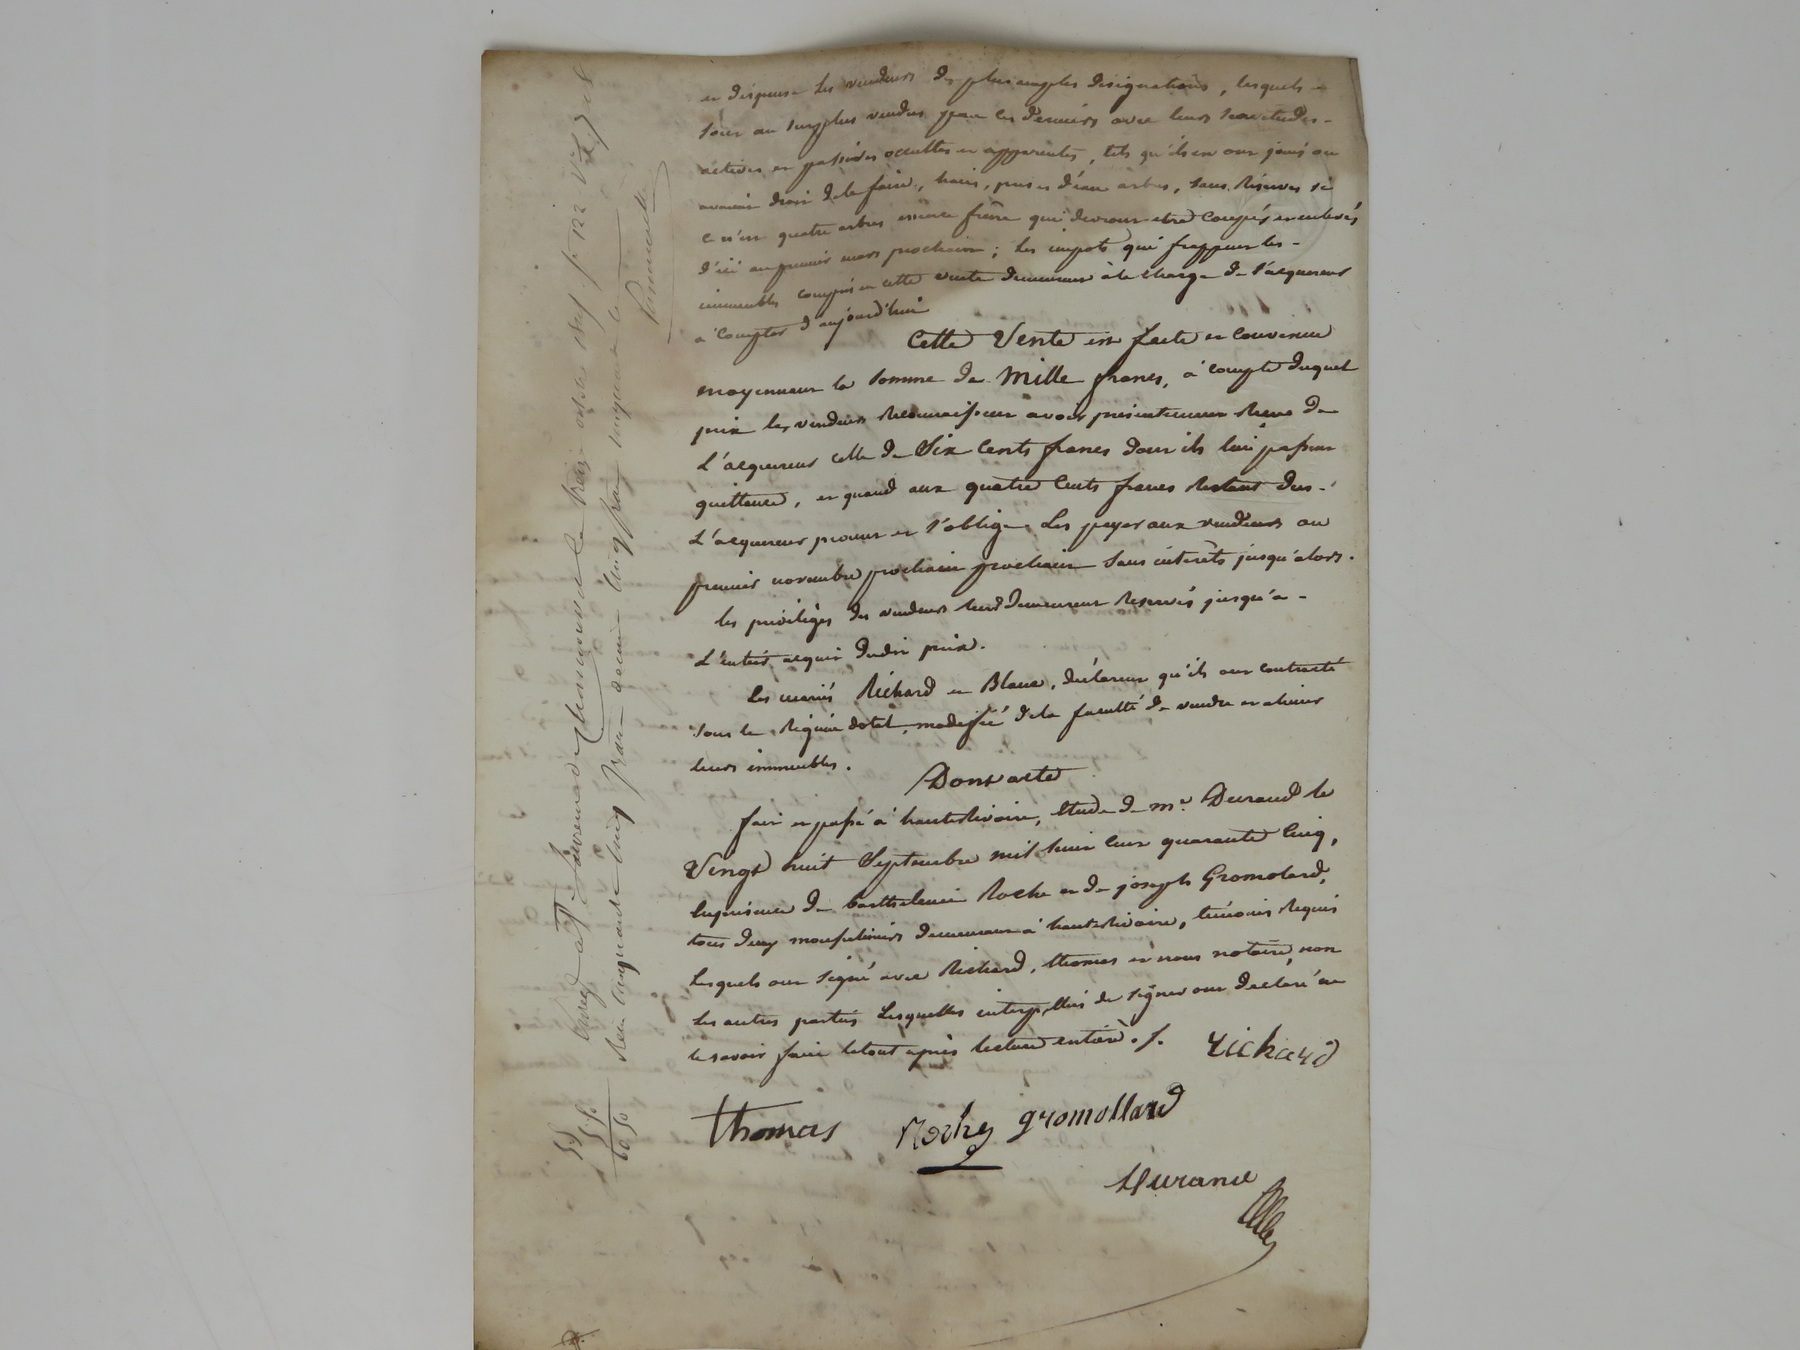 en dispense les vendeurs de plus amples désignations, lesquels
sont au surplus vendus par ces derniers avec leurs servitudes
actives et passives occultes et apparentes, tels qu'ils en ont joui ou
avaient droit de le faire, haies, prises d'eau arbres, sans réserves si
ce n'est quatre arbres essence frêne qui devront etre coupés et enlevés
d'ici au premier mars prochain ; les impots qui frappent les
immeubles compris en cette vente demeurent à la charge de l'acquereur
a compter d'aujourd'hui
Cette Vente est faite et convenue
moyennant la somme de Mille francs, à compte duquel
prix les vendeurs reconnaissent avoir présentement reçu de
L'acquereur celle de Six Cents francs dont ils lui passent
quittance, et quand aux quatre Cents francs restant dus
L'acquereur promet et s'oblige les payer aux vendeurs au
premier novembre prochain prochain sans intérêts jusqu'alors.
les priviléges des vendeurs leur demeurent reservés jusqu'a
L'entier acquit dudit prix.
Les mariés Richard et Blanc, déclarent qu'ils ont contracté
sous le régime dotal, modifié de la faculté de vendre et aliéner
leurs immeubles.
Dont acte
fait et passé à hauterivoire, étude de me. Durand le
Vingt huit Septembre mil huit cent quarante cinq,
en présence de barthelemi Roche et de joseph Gromolard,
tous deux demeurant à hauterivoire, témoins requis
lesquels ont signé avec Richard, thomas et nous notaire, non
les autres parties lesquelles interpellées de signer ont declaré ne
le savoir faire le tout après lecture entière ./.
richard
thomas
Roche
gromollard
Durand
Reçu cinquante cinq francs decime cinq francs cinquante c
55
5.50
60.50